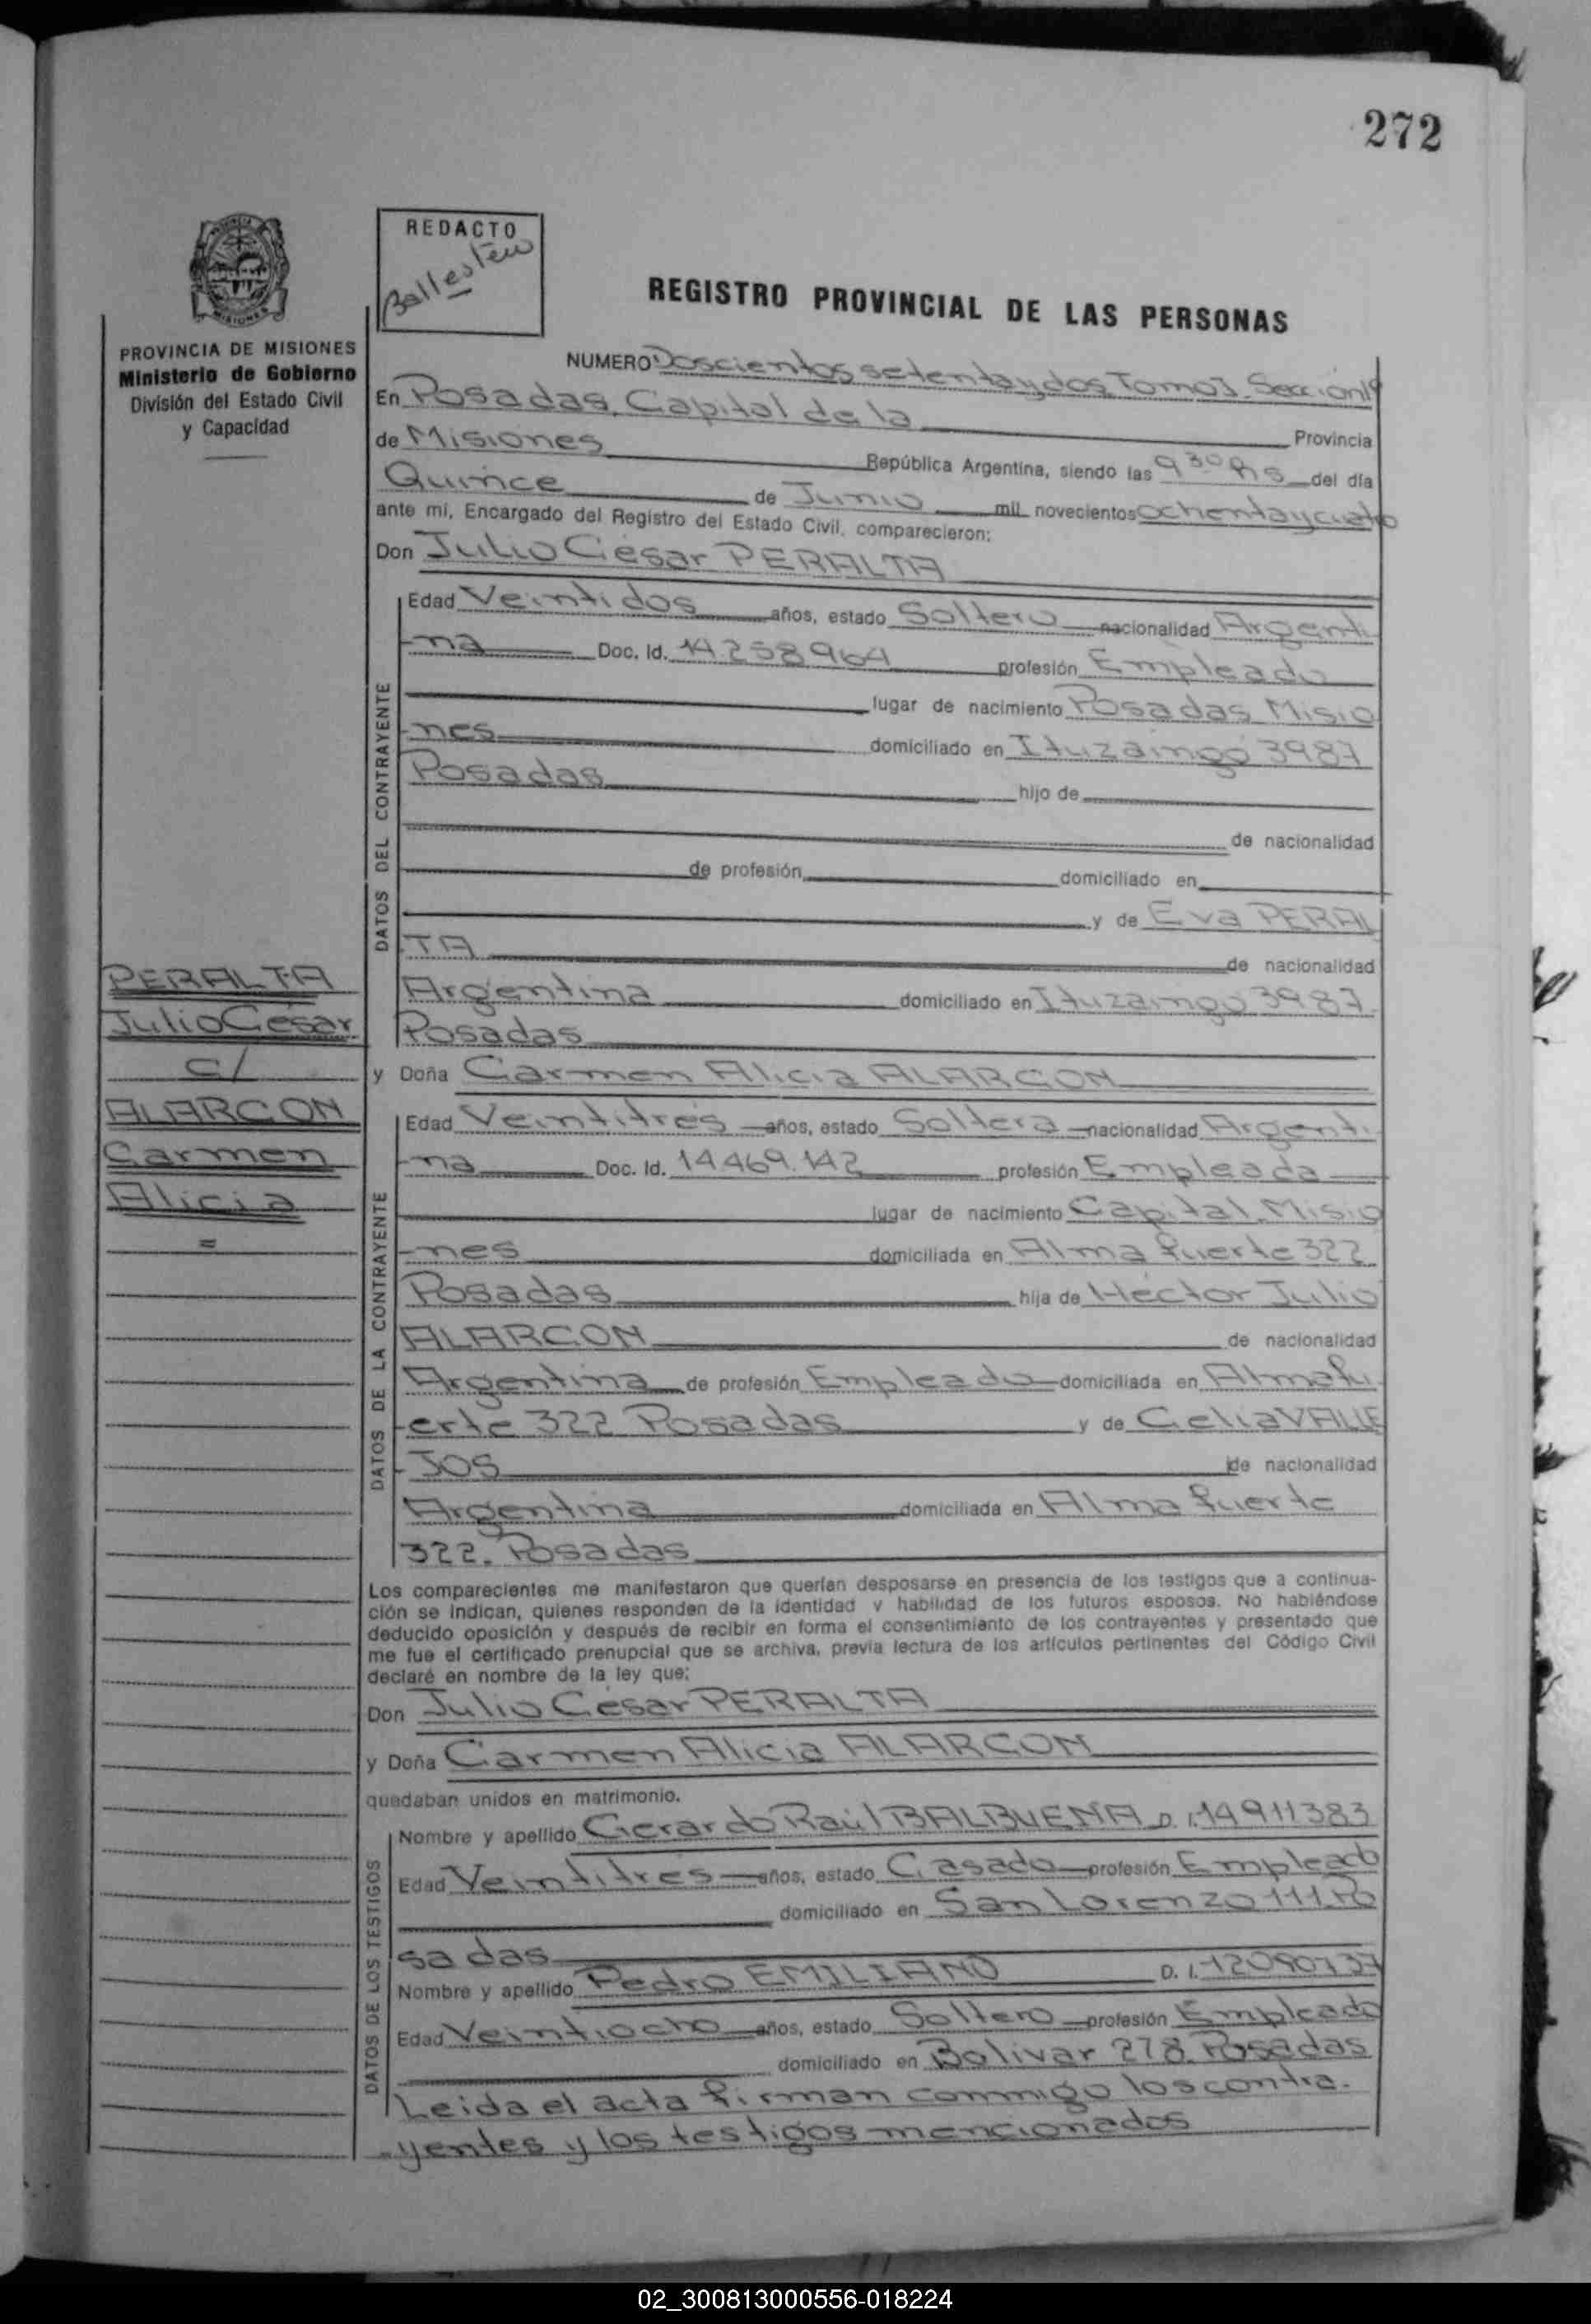 272
REDACTO
REGISTRO PROVINCIAL DE LAS PERSONAS
PROVINCIA DE MISIONES
Ministerio de Gobierno
División del Estado Civil
y Capacidad
NUMERO Doscientos setenta y dos Tomo I. Sección 1ª
En Posadas, Capital de la Provincia
de Misiones República Argentina, siendo las 9 30 hs del día
Quince de Junio mil novecientos ochenta y cuatro
ante mí, Encargado del Registro del Estado Civil, comparecieron:
Don Julio César PERALTA
DATOS DEL CONTRAYENTE
Edad Veintidos años, estado Soltero nacionalidad Argenti
-na Doc. Id. 14258964 profesión Empleado
lugar de nacimiento Posadas Misio
-nes domiciliado en Ituzaingó 3987
Posadas hijo de
de nacionalidad
de profesión domiciliado en
y de Eva PERAL
TA de nacionalidad
Argentina domiciliado en Ituzaingó 3987
Posadas
PERALTA
Julio César
c/
ALARCON
Carmen
Alicia
=
y Doña Carmen Alicia ALARCON
DATOS DE LA CONTRAYENTE
Edad Veintitrés años, estado Soltera nacionalidad Argenti
-na Doc. Id. 14469.142 profesión Empleada
lugar de nacimiento Capital. Misio
-nes domiciliada en Alma fuerte 322
Posadas hija de Héctor Julio
ALARCON de nacionalidad
Argentina de profesión Empleado domiciliada en Almafu
-erte 322 Posadas y de Celia VALLE
-JOS de nacionalidad
Argentina domiciliada en Alma fuerte
322. Posadas
Los comparecientes me manifestaron que querían desposarse en presencia de los testigos que a continua-
ción se indican, quienes responden de la identidad y habilidad de los futuros esposos. No habiéndose
deducido oposición y después de recibir en forma el consentimiento de los contrayentes y presentado que
me fue el certificado prenupcial que se archiva, previa lectura de los artículos pertinentes del Código Civil
declaré en nombre de la ley que:
Don Julio César PERALTA
y Doña Carmen Alicia ALARCON
quedaban unidos en matrimonio.
DATOS DE LOS TESTIGOS
Nombre y apellido Gerardo Raúl BALBUENA D. I. 14911383
Edad Veintitrés años, estado Casado profesión Empleado
domiciliado en San Lorenzo 111. Po
sadas
Nombre y apellido Pedro EMILIANO D. I. 12090737
Edad Veintiocho años, estado Soltero profesión Empleado
domiciliado en Bolivar 278. Posadas
Leida el acta firman conmigo los contra-
-yentes y los testigos mencionados
02_300813000556-018224